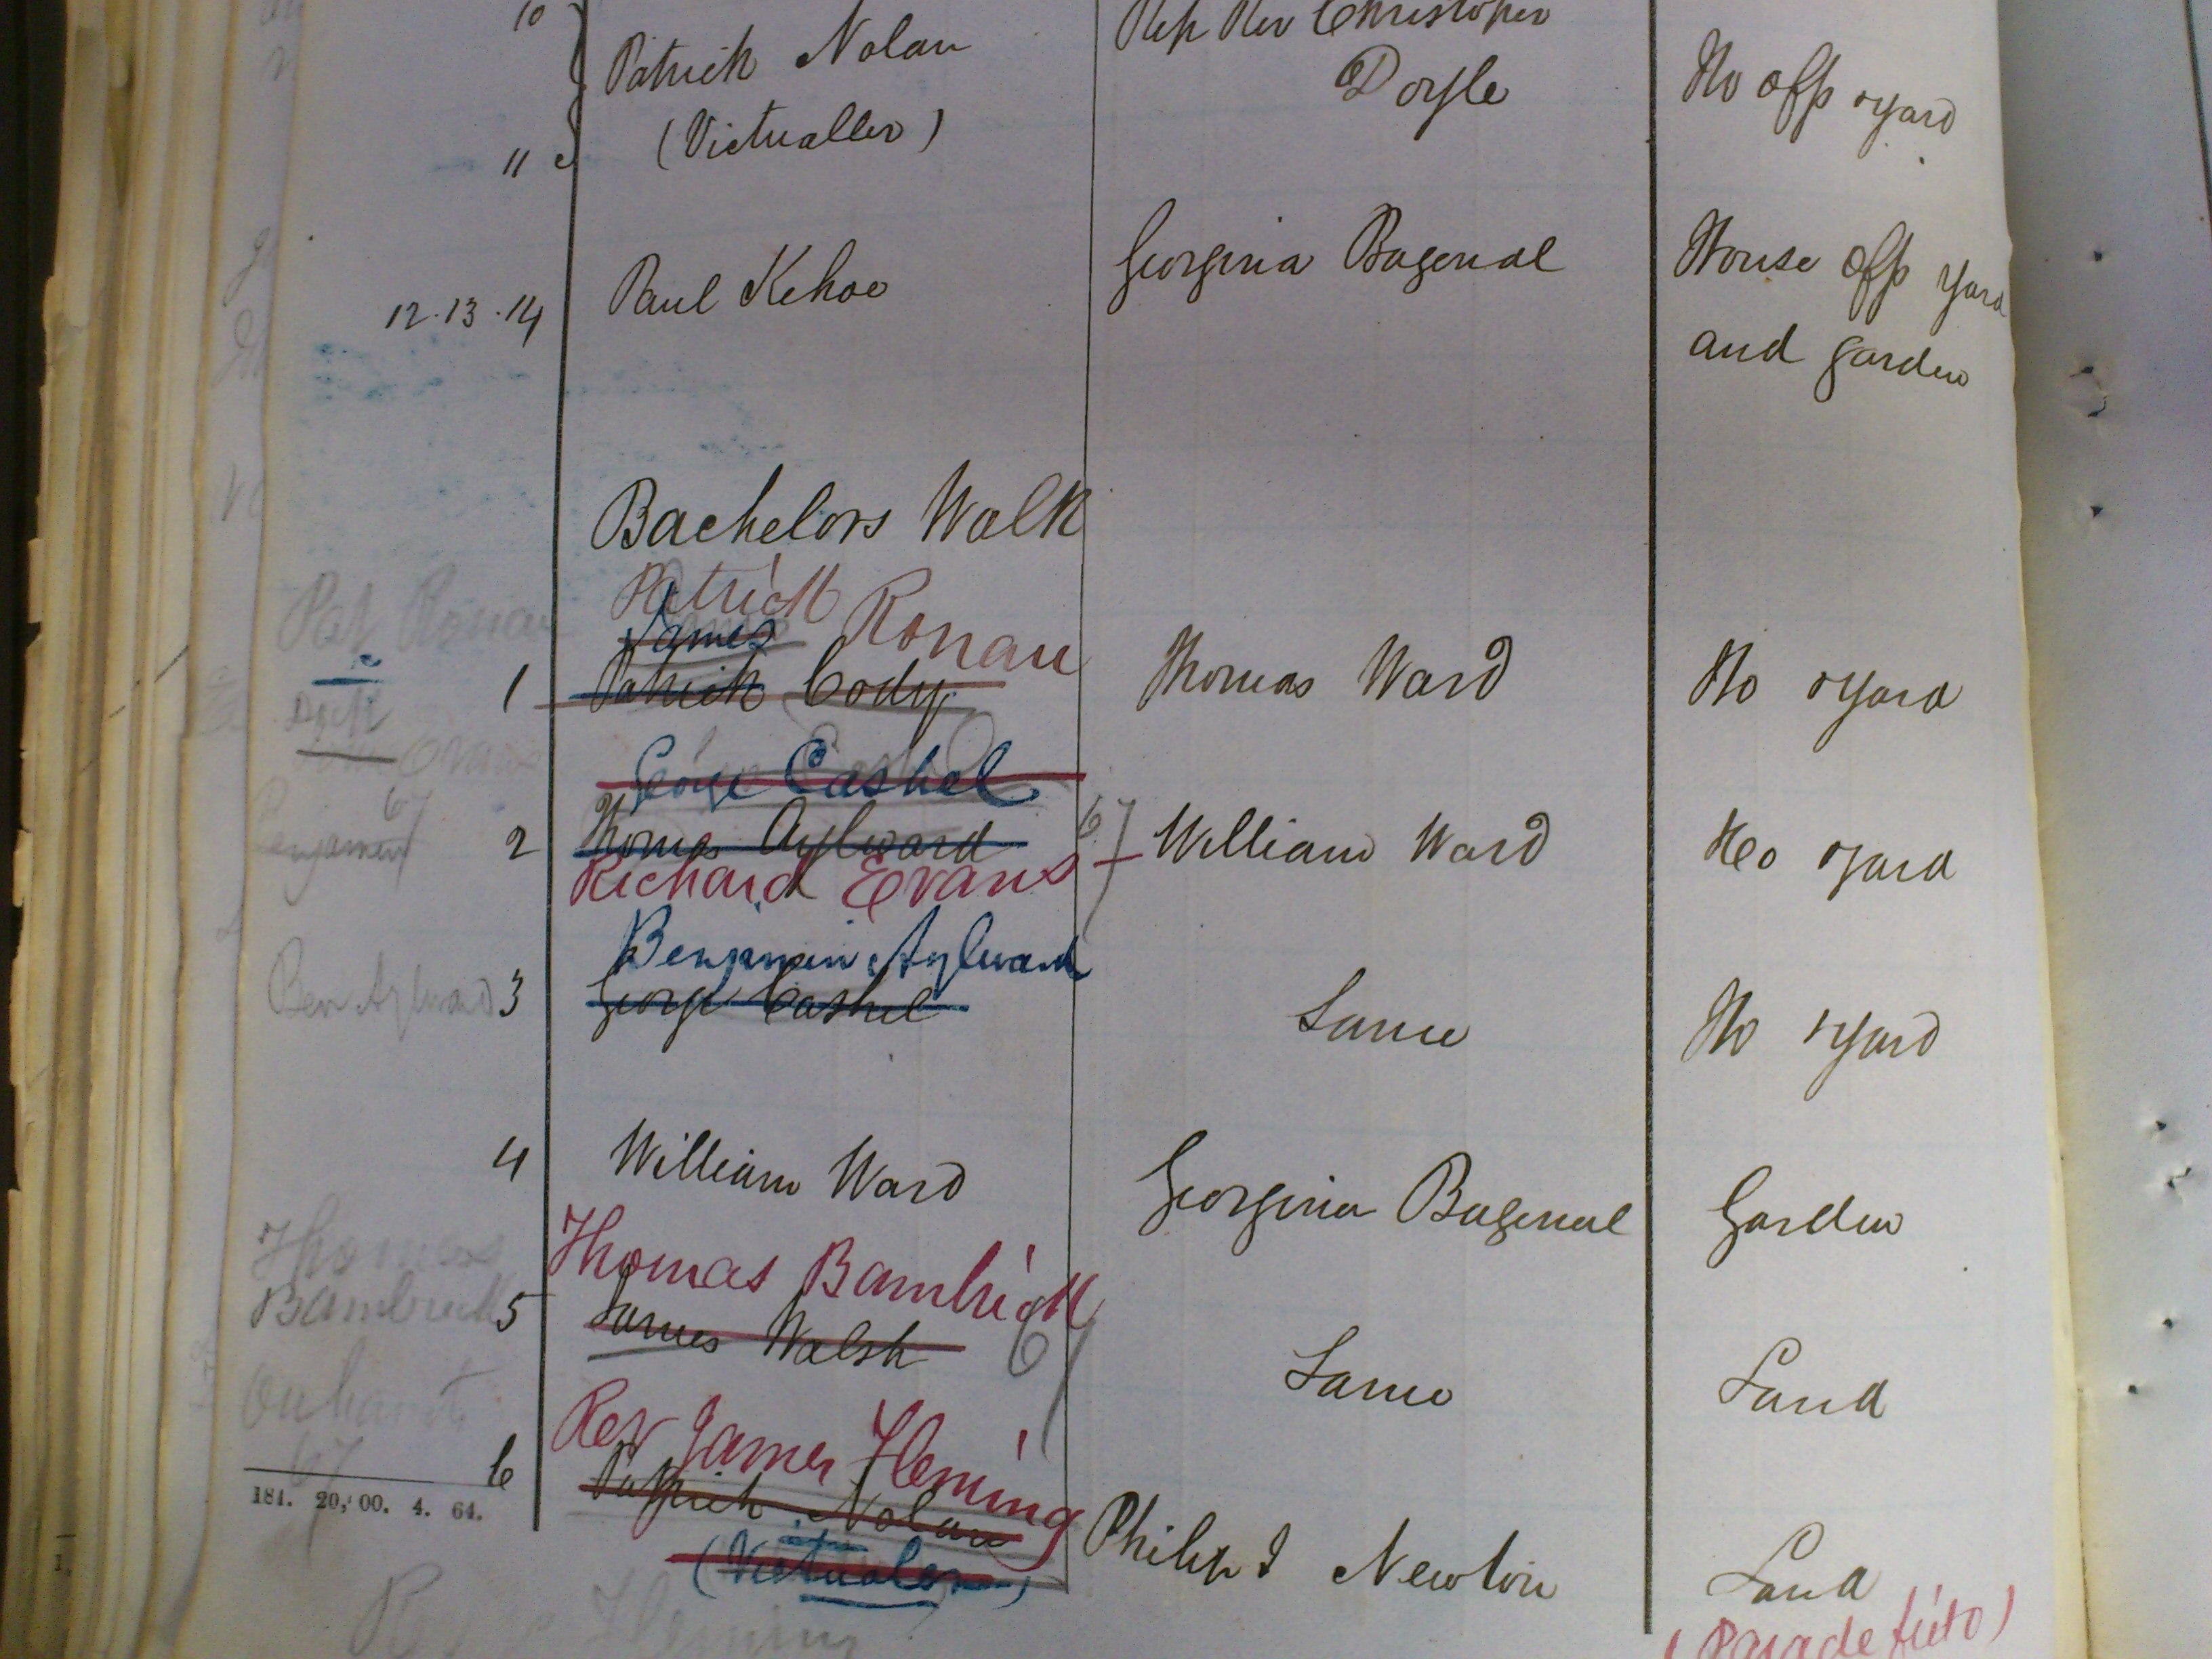 10 Patrick Nolan Rep Rev Christopher
Doyle Ho offs yard
11 (Victualler)
12.13.14 Paul Kehoe Georgina Bagenal House offs yard
and garden
Bachelors Walk
Pat Ronan Patrick Ronan
James
1 Patrick Cody Thomas Ward Ho yard
Evans
George Cashel
67
Benjamin 2 Thomas Aylward 67 William Ward Ho yard
Richard Evans
Benjamin Aylward
Ben Aylward 3 George Cashel Same Ho yard
4 William Ward Georgina Bagenal Garden
Thomas Thomas Bambrick
Bambrick 5 James Walsh 67 Same Land
Rev James Fleming
67 6 Patrick Nolan Philip J Newton Land
181. 20,'00. 4. 64.
(Victualer)
(Parade field)
Rev Fleming